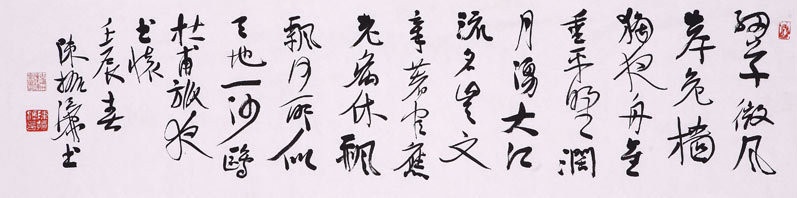 細草微風
岸危檣
獨夜舟星
垂平野濶
月湧大江
流名豈文
章著官應
老病休飄
飄何所似
天地一沙鷗
杜甫旅夜
書懷
壬辰春
陳振濂書